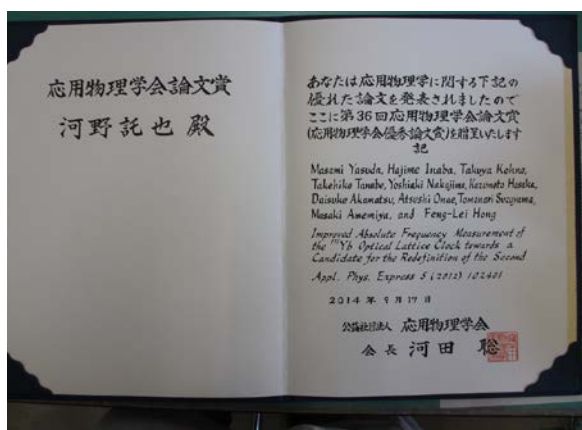 応用物理学会論文賞
河野託也 殿
あなたは応用物理学に関する下記の
優れた論文を発表されましたので
ここに第36回応用物理学会論文賞
(応用物理学会優秀論文賞)を贈呈いたします
記
Masami Yasuda, Hajime Inaba, Takuya Kohno,
Takehiko Tanabe, Yoshiaki Nakajima, Kazumoto Hosaka,
Daisuke Akamatsu, Atsushi Onae, Tomonari Suzuyama,
Masaki Amemiya, and Feng-Lei Hong
Improved Absolute Frequency Measurement of
the ¹⁷¹Yb Optical Lattice Clock towards a
Candidate for the Redefinition of the Second
Appl. Phys. Express 5 (2012) 102401
2014年9月17日
公益社団法人 応用物理学会
会長 河田 聡